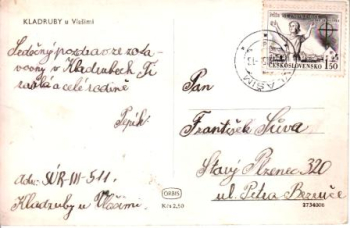 KLADRUBY u Vlašimi
Srdečný pozdrav ze zota-
vovny v Kladrubech Ti
zasílá a celé rodině
Pepík
Adr: SÚR-III-511.
Kladruby u Vlašimi.
ORBIS
ČESKOSLOVENSKO
1.50
Pan
František Sůva
Starý Plzenec 320
ul. Petra Bezruče